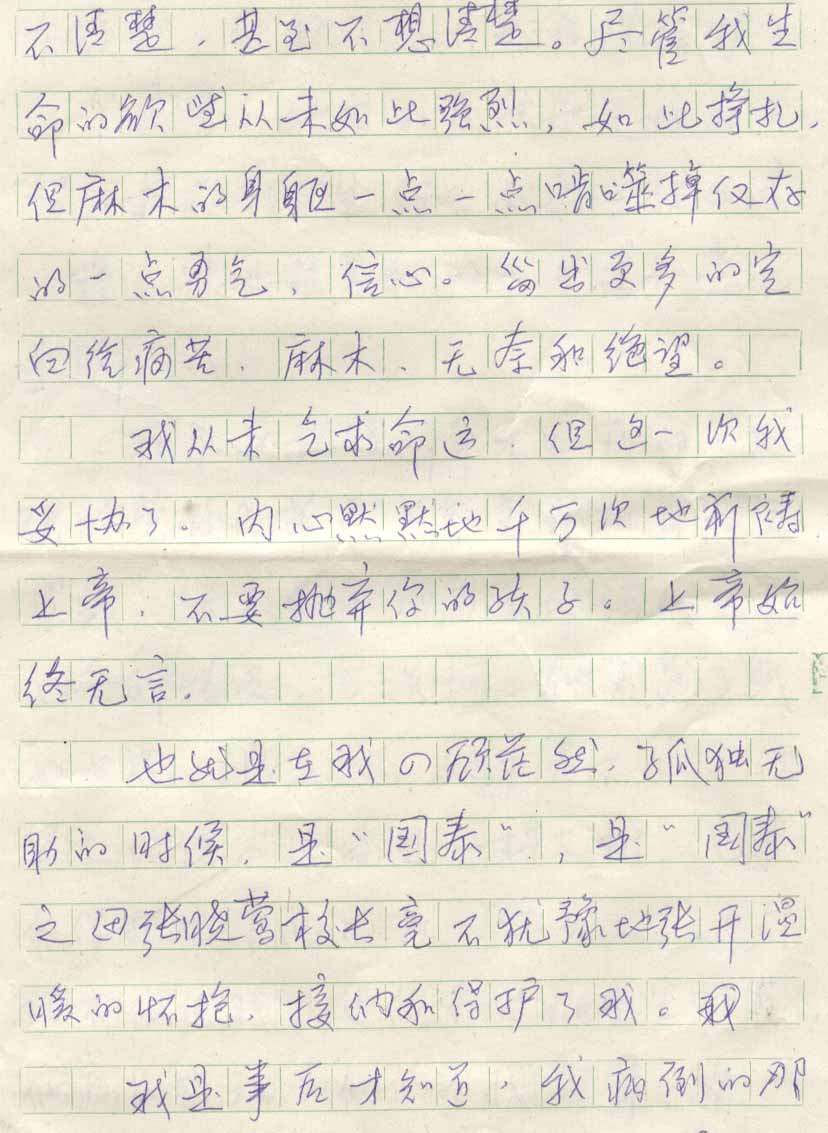 不清楚，甚至不想清楚。尽管我生
命的欲望从未如此强烈，如此挣扎，
但麻木的身躯一点一点啃噬掉仅存
的一点勇气、信心。留出更多的空
白给病苦、麻木、无奈和绝望。
我从未乞求命运，但这一次我
妥协了。内心默默地千万次地祈祷
上帝，不要抛弃你的孩子。上帝始
终无言。
也就是在我四顾茫然，孤独无
助的时候，是“国泰”，是“国泰”
之田张晓莺校长毫不犹豫地张开温
暖的怀抱，接纳和保护了我。
我是事后才知道，我病倒的那